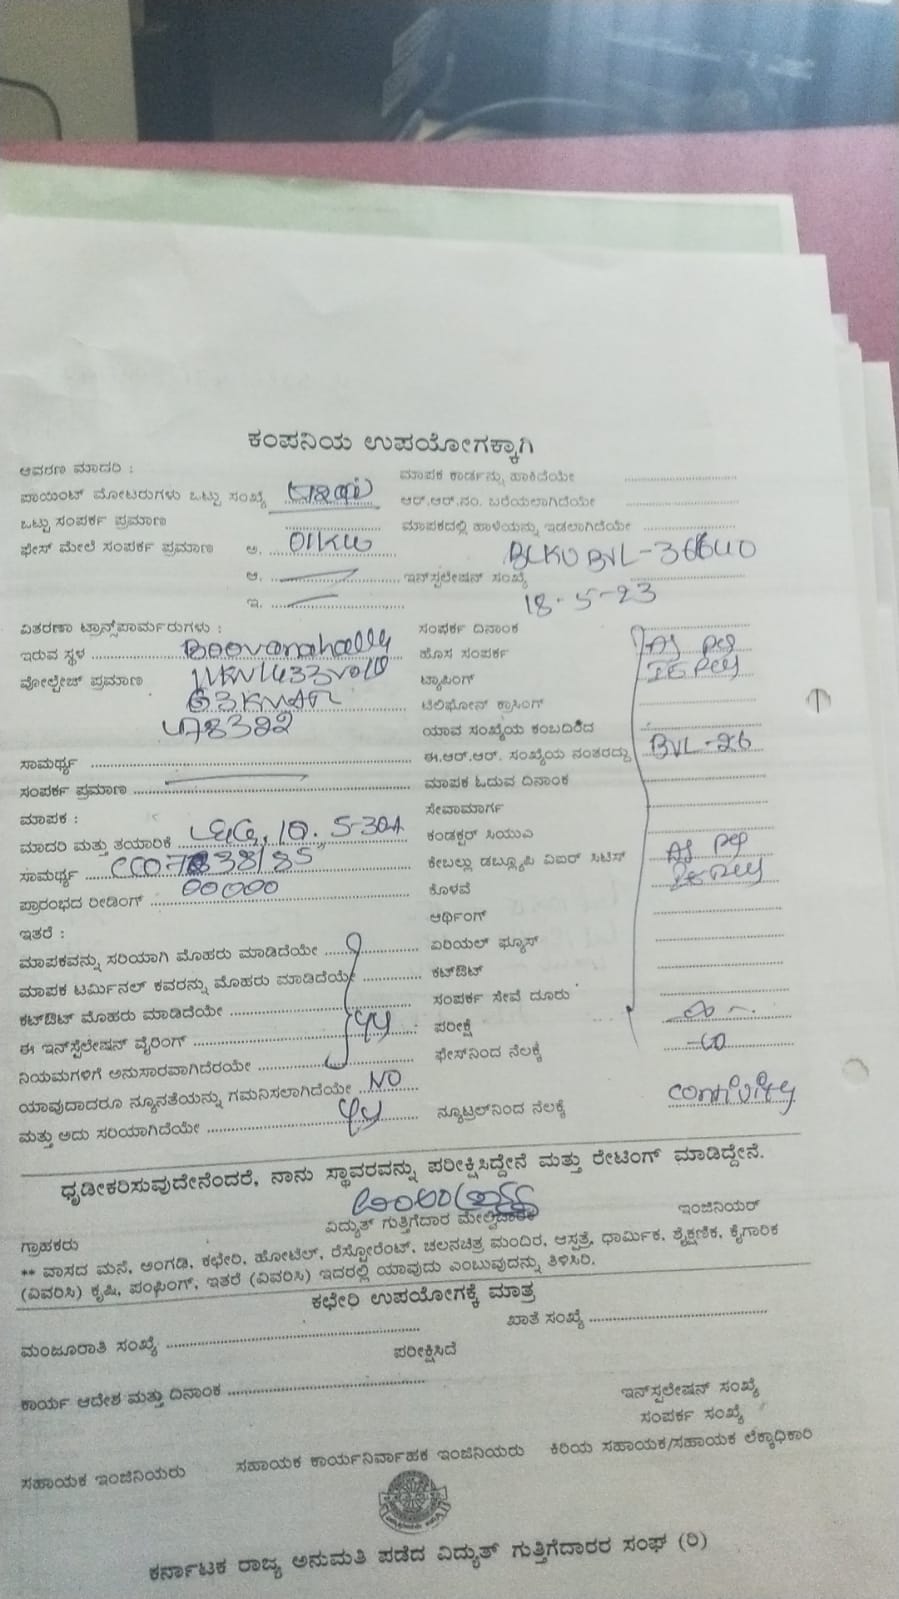 ಕಂಪನಿಯ ಉಪಯೋಗಕ್ಕಾಗಿ
ಆವರಣ ಮಾದರಿ :
ಮಾಪಕ ಕಾರ್ಡನ್ನು ಹಾಕಿದೆಯೇ
ಪಾಯಿಂಟ್ ಮೋಟರುಗಳು ಒಟ್ಟು ಸಂಖ್ಯೆ
ಆರ್.ಆರ್.ನಂ. ಬರೆಯಲಾಗಿದೆಯೇ
ಒಟ್ಟು ಸಂಪರ್ಕ ಪ್ರಮಾಣ
ಮಾಪಕದಲ್ಲಿ ಹಾಳೆಯನ್ನು ಇಡಲಾಗಿದೆಯೇ
ಫೇಸ್ ಮೇಲೆ ಸಂಪರ್ಕ ಪ್ರಮಾಣ ಅ. 01KW
BLKUBVL-36640
ಆ. ಇನ್‌ಸ್ಪಲೇಷನ್ ಸಂಖ್ಯೆ
ಇ. 18-5-23
ವಿತರಣಾ ಟ್ರಾನ್ಸ್‌ಪಾರ್ಮರುಗಳು :
ಸಂಪರ್ಕ ದಿನಾಂಕ
ಇರುವ ಸ್ಥಳ Boovanahally
ಹೊಸ ಸಂಪರ್ಕ
ವೋಲ್ಟೇಜ್ ಪ್ರಮಾಣ
ಟ್ಯಾಪಿಂಗ್
63KVAR
ಟೆಲಿಫೋನ್ ಕ್ರಾಸಿಂಗ್
ಯಾವ ಸಂಖ್ಯೆಯ ಕಂಬದಿಂದ
ಸಾಮರ್ಥ್ಯ
ಈ.ಆರ್.ಆರ್. ಸಂಖ್ಯೆಯ ನಂತರದ್ದು BVL-26
ಸಂಪರ್ಕ ಪ್ರಮಾಣ
ಮಾಪಕ ಓದುವ ದಿನಾಂಕ
ಮಾಪಕ :
ಸೇವಾಮಾರ್ಗ
ಮಾದರಿ ಮತ್ತು ತಯಾರಿಕೆ 5-30A
ಕಂಡಕ್ಟರ್ ಸಿಯುಎ
ಸಾಮರ್ಥ್ಯ
ಕೇಬಲ್ಲು ಡಬ್ಲ್ಯೂಪಿ ವಿಐರ್ ಸಿಟಿಸ್
ಪ್ರಾರಂಭದ ರೀಡಿಂಗ್ 00000
ಕೊಳವೆ
ಇತರೆ :
ಆರ್ಥಿಂಗ್
ಮಾಪಕವನ್ನು ಸರಿಯಾಗಿ ಮೊಹರು ಮಾಡಿದೆಯೇ
ಏರಿಯಲ್ ಫ್ಯೂಸ್
ಮಾಪಕ ಟರ್ಮಿನಲ್ ಕವರನ್ನು ಮೊಹರು ಮಾಡಿದೆಯೇ
ಕಟ್‌ಔಟ್
ಕಟ್‌ಔಟ್ ಮೊಹರು ಮಾಡಿದೆಯೇ
ಸಂಪರ್ಕ ಸೇವೆ ದೂರು
ಈ ಇನ್‌ಸ್ಪಲೇಷನ್ ವೈರಿಂಗ್
ಪರೀಕ್ಷೆ
ನಿಯಮಗಳಿಗೆ ಅನುಸಾರವಾಗಿದೆರಯೇ
ಫೇಸ್‌ನಿಂದ ನೆಲಕ್ಕೆ
ಯಾವುದಾದರೂ ನ್ಯೂನತೆಯನ್ನು ಗಮನಿಸಲಾಗಿದೆಯೇ NO
ಮತ್ತು ಅದು ಸರಿಯಾಗಿದೆಯೇ
ನ್ಯೂಟ್ರಲ್‌ನಿಂದ ನೆಲಕ್ಕೆ
ಧೃಡೀಕರಿಸುವುದೇನೆಂದರೆ, ನಾನು ಸ್ಥಾವರವನ್ನು ಪರೀಕ್ಷಿಸಿದ್ದೇನೆ ಮತ್ತು ರೇಟಿಂಗ್ ಮಾಡಿದ್ದೇನೆ.
ಗ್ರಾಹಕರು ವಿದ್ಯುತ್ ಗುತ್ತಿಗೆದಾರ ಮೇಲ್ವಿಚಾರಕ ಇಂಜಿನಿಯರ್
** ವಾಸದ ಮನೆ, ಅಂಗಡಿ, ಕಛೇರಿ, ಹೋಟೆಲ್, ರೆಸ್ಟೋರೆಂಟ್, ಚಲನಚಿತ್ರ ಮಂದಿರ, ಆಸ್ಪತ್ರೆ, ಧಾರ್ಮಿಕ, ಶೈಕ್ಷಣಿಕ, ಕೈಗಾರಿಕ
(ವಿವರಿಸಿ) ಕೃಷಿ, ಪಂಪಿಂಗ್, ಇತರೆ (ವಿವರಿಸಿ) ಇದರಲ್ಲಿ ಯಾವುದು ಎಂಬುವುದನ್ನು ತಿಳಿಸಿರಿ.
ಕಛೇರಿ ಉಪಯೋಗಕ್ಕೆ ಮಾತ್ರ
ಮಂಜೂರಾತಿ ಸಂಖ್ಯೆ
ಖಾತೆ ಸಂಖ್ಯೆ
ಪರೀಕ್ಷಿಸಿದೆ
ಕಾರ್ಯ ಆದೇಶ ಮತ್ತು ದಿನಾಂಕ
ಇನ್‌ಸ್ಪಲೇಷನ್ ಸಂಖ್ಯೆ
ಸಂಪರ್ಕ ಸಂಖ್ಯೆ
ಸಹಾಯಕ ಇಂಜಿನಿಯರು ಸಹಾಯಕ ಕಾರ್ಯನಿರ್ವಾಹಕ ಇಂಜಿನಿಯರು ಕಿರಿಯ ಸಹಾಯಕ/ಸಹಾಯಕ ಲೆಕ್ಕಾಧಿಕಾರಿ
ಕರ್ನಾಟಕ ರಾಜ್ಯ ಅನುಮತಿ ಪಡೆದ ವಿದ್ಯುತ್ ಗುತ್ತಿಗೆದಾರರ ಸಂಘ (ರಿ)